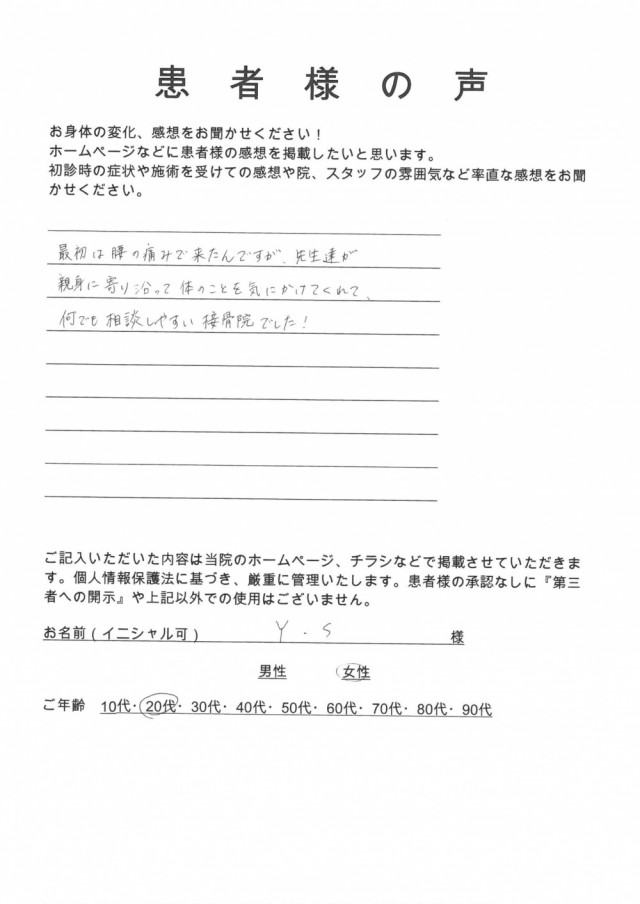 患者様の声
お身体の変化、感想をお聞かせください！
ホームページなどに患者様の感想を掲載したいと思います。
初診時の症状や施術を受けての感想や院、スタッフの雰囲気など率直な感想をお聞
かせください。
最初は腰の痛みで来たんですが、先生達が
親身に寄り沿って体のことを気にかけてくれて、
何でも相談しやすい接骨院でした！
ご記入いただいた内容は当院のホームページ、チラシなどで掲載させていただきま
す。個人情報保護法に基づき、厳重に管理いたします。患者様の承認なしに『第三
者への開示』や上記以外での使用はございません。
お名前（イニシャル可） Y.S 様
男性 女性
ご年齢 10代・20代・30代・40代・50代・60代・70代・80代・90代